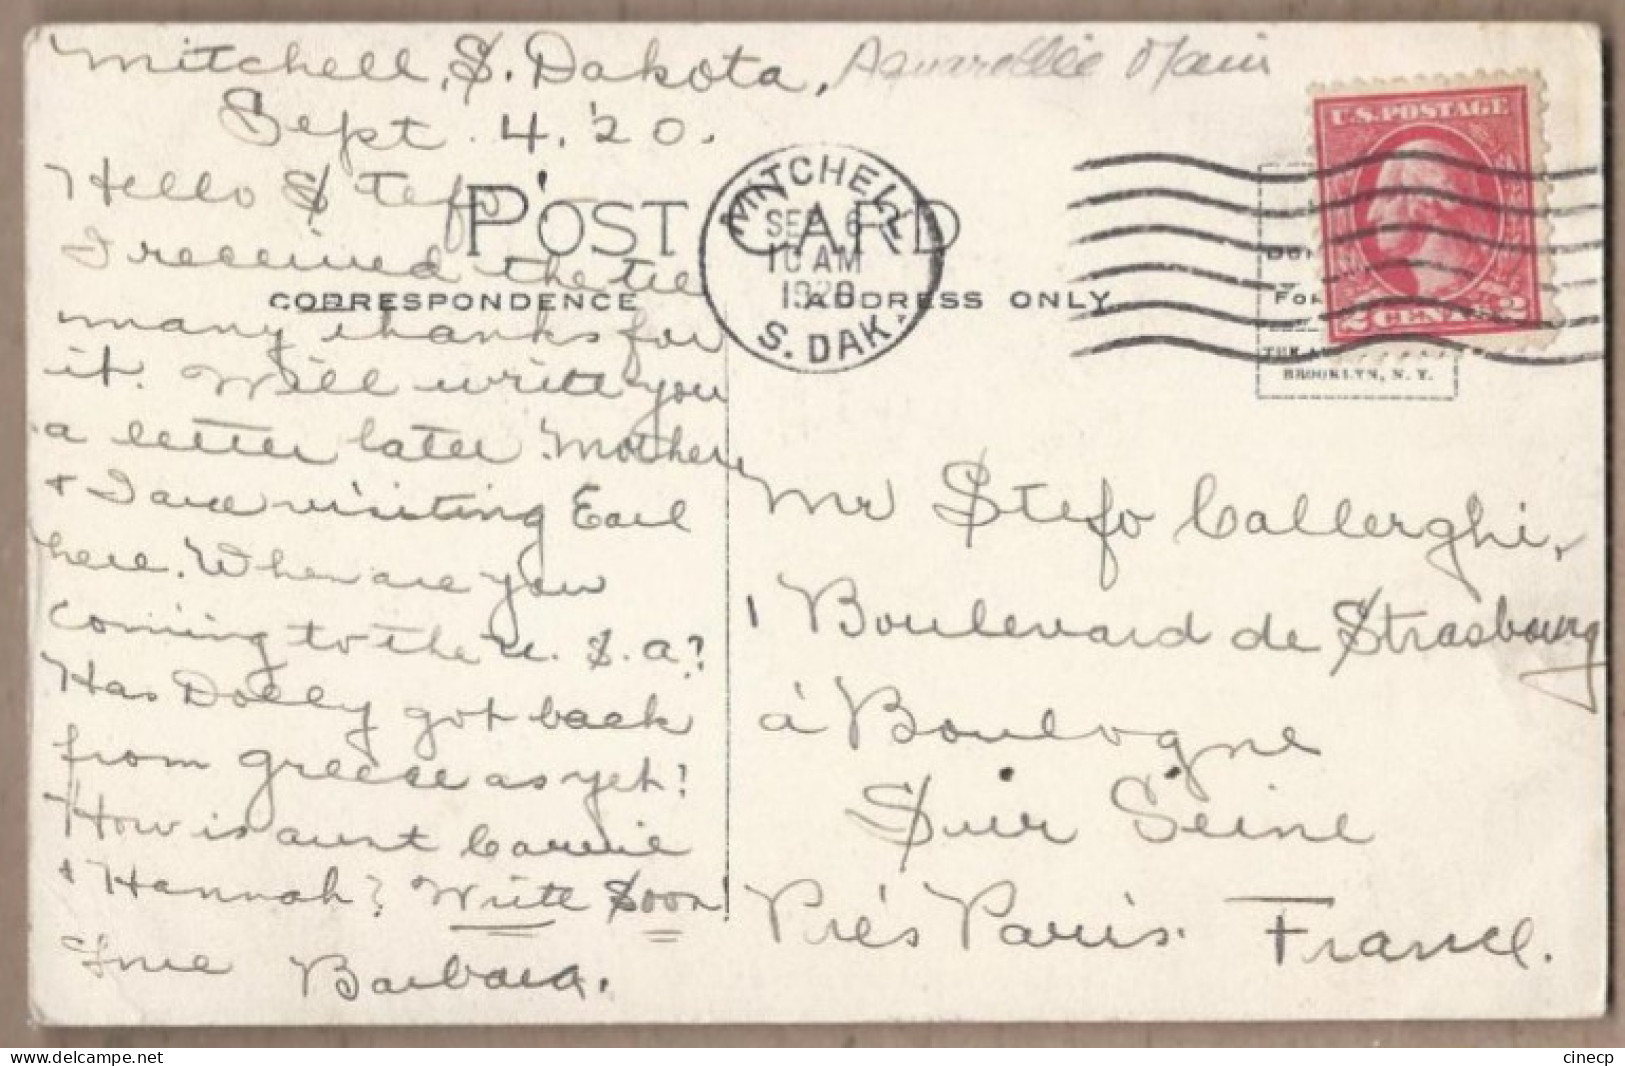 Mitchell, S. Dakota,
Sept. 4, '20.
Hello Stefo
I received the tie
many thanks for
it. Will write you
a letter later. Mother
+ I are visiting Earl
here. When are you
coming to the U. S. A?
Has Dolly got back
from Greece as yet?
How is aunt Carrie
+ Hannah? Write Soon!
Barbara.
POST CARD
CORRESPONDENCE
ADDRESS ONLY
MITCHELL
SEP 6
10 AM
1920
S. DAK.
U.S. POSTAGE
2 CENTS 2
BROOKLYN, N. Y.
Mr Stefo Callerghi,
1 Boulevard de Strasbourg
à Boulogne
Sur Seine
Prés Paris.
France.
www.delcampe.net
cinecp